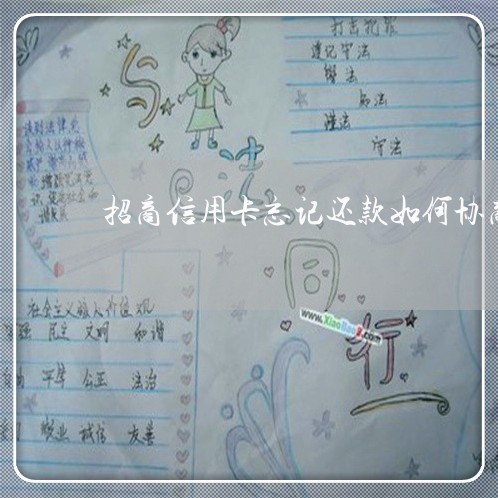 打击犯罪
遵记守法
学法
知法
懂法
守法
与法
招商信用卡忘记还款如何协
同
www.XiaoBao8.com
行
社会主义核心价值观
强 民主 文明 和谐
由 平等 公正 法治
敬业 诚信 友善